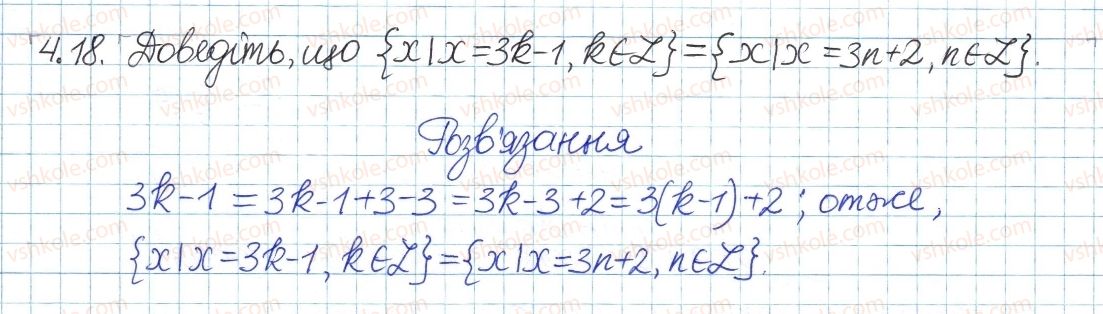 4.18. Доведіть, що {x|x=3k-1, k∈Z}={x|x=3n+2, n∈Z}.
Розв'язання
3k-1=3k-1+3-3=3k-3+2=3(k-1)+2; отже,
{x|x=3k-1, k∈Z}={x|x=3n+2, n∈Z}.